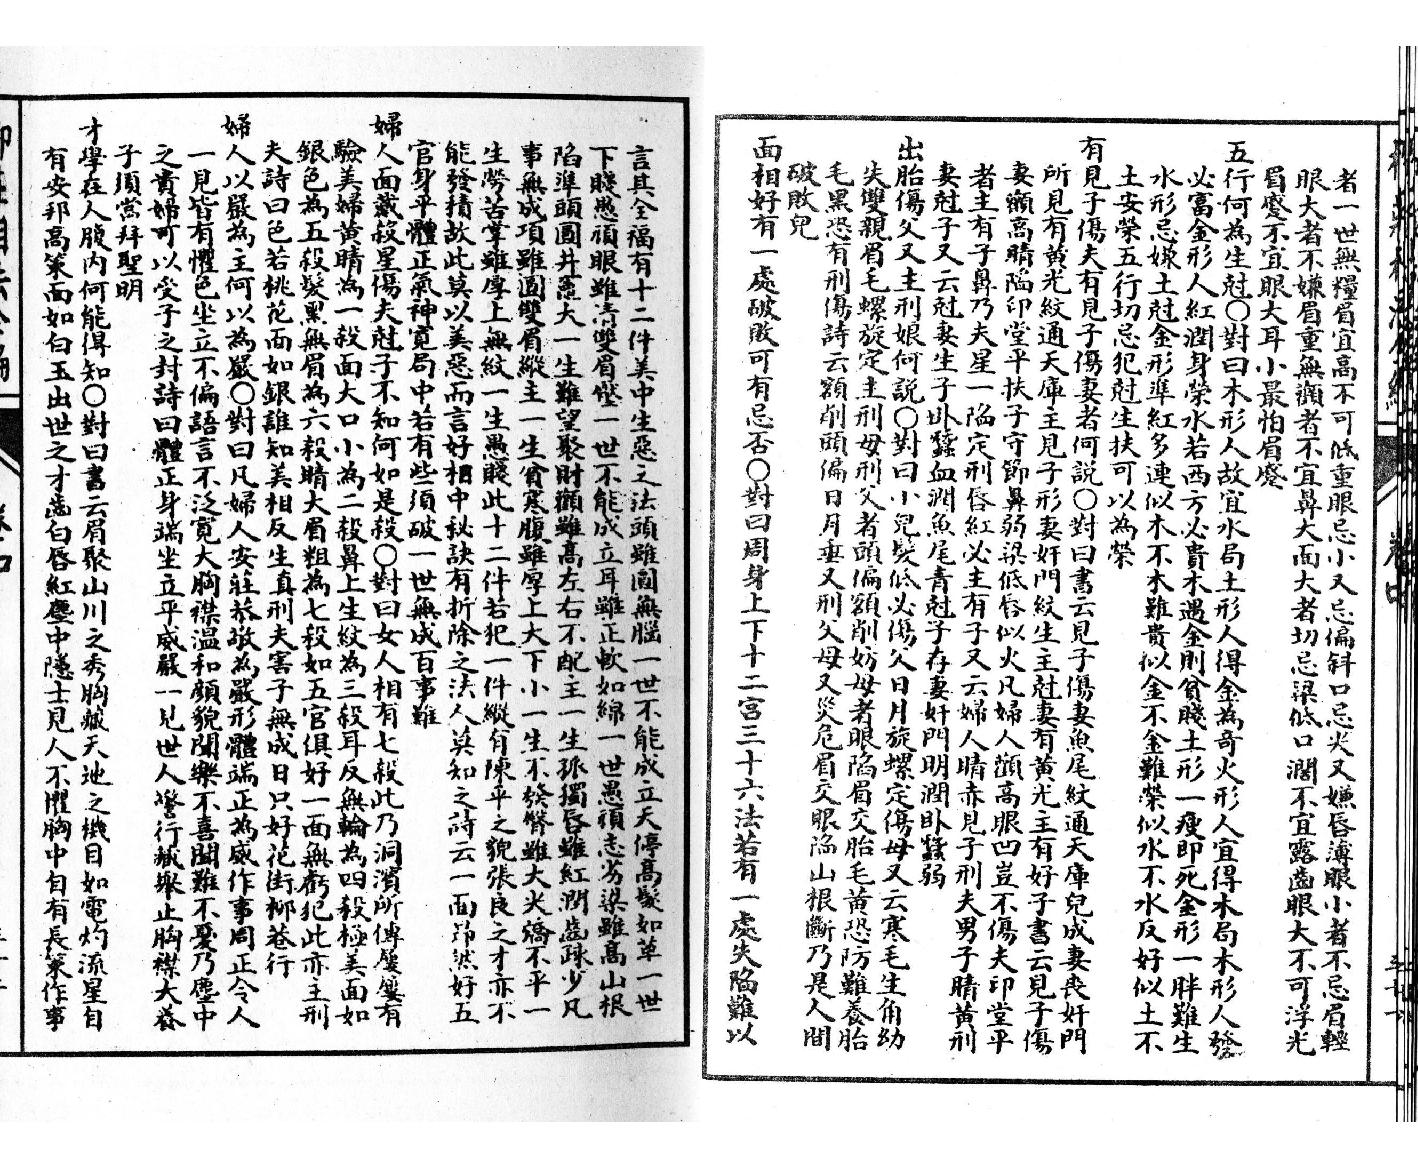 者一世無糧眉宜高不可低重眼忌小又忌偏斜口忌尖又嫌唇薄眼小者不忌眉輕
眼大者不嫌眉重無顴者不宜鼻大面大者切忌梁低口濶不宜露齒眼大不可浮光
眉蹙不宜眼大耳小最怕眉蹙
五行何為生尅〇對曰木形人故宜水局土形人得金為奇火形人宜得木局木形人發
必富金形人紅潤身榮水若西方必貴木遇金則貧賤土形一瘦即死金形一胖難生
水形忌嫌土尅金形準紅多連似木不木雖貴似金不金難榮似水不水反好似土不
土安榮五行切忌犯尅生扶可以為榮
有見子傷夫有見子傷妻者何説〇對曰書云見子傷妻魚尾紋通天庫兒成妻喪奸門
所見有黃光紋通天庫主見子形妻奸門紋生主尅妻有黃光主有好子書云見子傷
妻顴高睛陷印堂平扶子守節鼻弱梁低唇似火凡婦人顴高眼凹豈不傷夫印堂平
者主有子鼻乃夫星一陷定刑唇紅必主有子又云婦人睛赤見子刑夫男子睛黃刑
妻尅子又云尅妻生子卧蠶血潤魚尾青尅子存妻奸門明潤卧蠶弱
出胎傷父又主刑娘何説〇對曰小兒髮低必傷父日月旋螺定傷母又云寒毛生角幼
失雙親眉毛螺旋定主刑母刑父者頭偏額削妨母者眼陷眉交胎毛黃恐防難養胎
毛黑恐有刑傷詩云額削頭偏日月垂又刑父母又災危眉交眼陷山根斷乃是人間
破敗兒
面相好有一處破敗可有忌否〇對曰周身上下十二宮三十六法若有一處失陷難以
言其全福有十二件美中生惡之法頭雖圓無腦一世不能成立天停高髮如草一世
下賤愚頑眼雖清雙眉蹙一世不能成立耳雖正軟如綿一世愚頑志劣梁雖高山根
陷準頭圓井竈大一生難望聚財顴雖高左右不配主一生孤獨唇雖紅潤齒踈少凡
事無成項雖圓雙眉縱主一生貧寒腹雖厚上大下小一生不發臀雖大尖矯不平一
生勞苦掌雖厚上無紋一生愚賤此十二件若犯一件縱有陳平之貌張良之才亦不
能發積故此莫以美惡而言好相中秘訣有折除之法人莫知之詩云一面昂然好五
官身平體正氣神寬局中若有些須破一世無成百事難
婦人面藏殺星傷夫尅子不知何如是殺〇對曰女人相有七殺此乃洞濱所傳屢屢有
驗美婦黃睛為一殺面大口小為二殺鼻上生紋為三殺耳反無輪為四殺極美面如
銀色為五殺髮黑無眉為六殺睛大眉粗為七殺如五官俱好一面無虧犯此亦主刑
夫詩曰色若桃花面如銀誰知美相反生真刑夫害子無成日只好花街柳巷行
婦人以嚴為主何以為嚴〇對曰凡婦人安莊恭敬為嚴形體端正為威作事周正令人
一見皆有懼色坐立不偏語言不泛寬大胸襟温和顏貌聞樂不喜聞難不憂乃塵中
之貴婦可以受子之封詩曰體正身端坐立平威嚴一見世人驚行藏舉止胸襟大養
子須當拜聖明
才學在人腹内何能得知〇對曰書云眉聚山川之秀胸藏天地之機目如電灼流星自
有安邦髙策面如白玉出世之才齒白唇紅塵中隱士見人不懼胸中自有長策作事